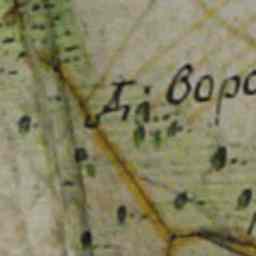 Д. Воро